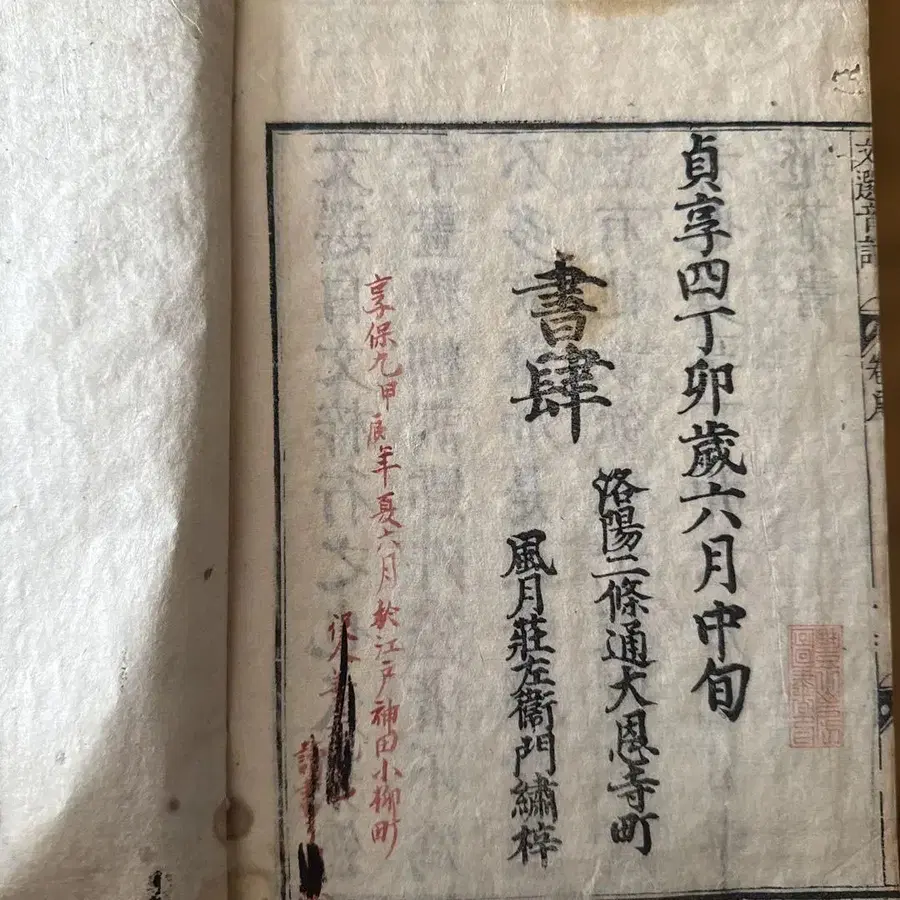 文選音註
貞享四丁卯歳六月中旬
書肆
洛陽二條通大恩寺町
風月莊左衛門繡梓
享保九甲辰年夏六月於江戸神田小柳町